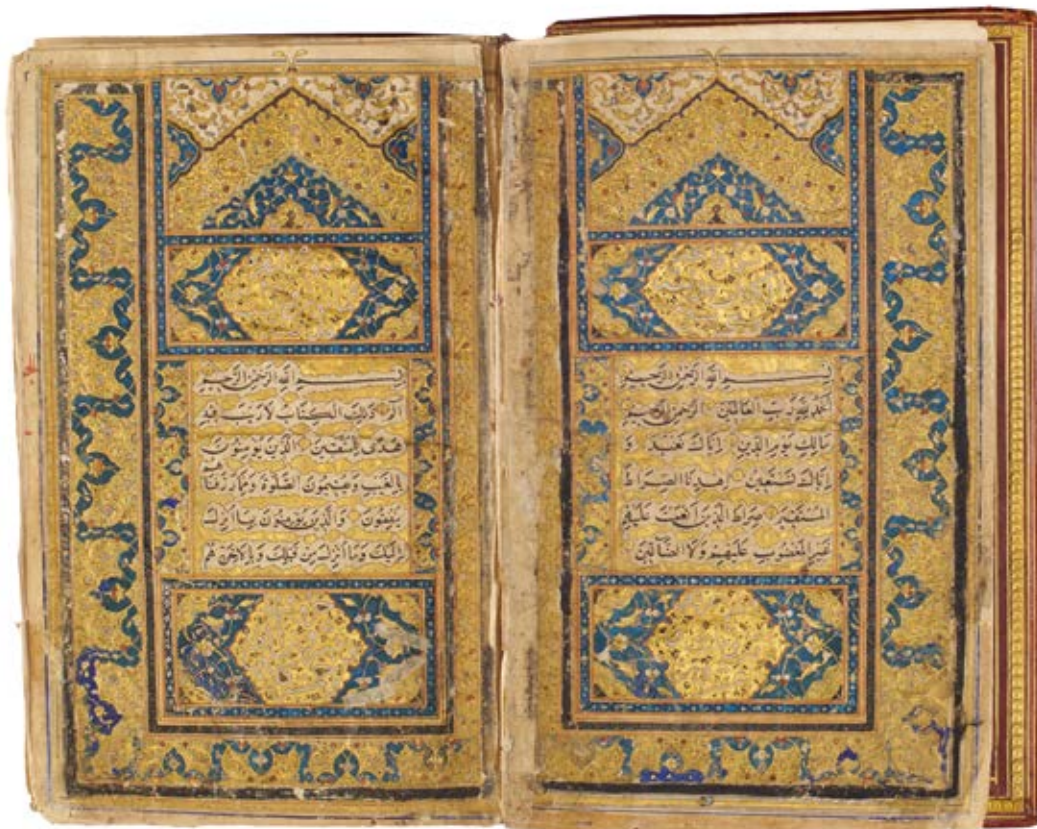 بسم الله الرحمن الرحيم
الحمد لله رب العالمين الرحمن الرحيم
مالك يوم الدين إياك نعبد و
إياك نستعين اهدنا الصراط
المستقيم صراط الذين أنعمت عليهم
غير المغضوب عليهم ولا الضالين
بسم الله الرحمن الرحيم
الم ذلك الكتاب لا ريب فيه
هدى للمتقين الذين يؤمنون
بالغيب ويقيمون الصلوة ومما رزقناهم
ينفقون والذين يؤمنون بما أنزل
إليك وما أنزل من قبلك وبالآخرة هم